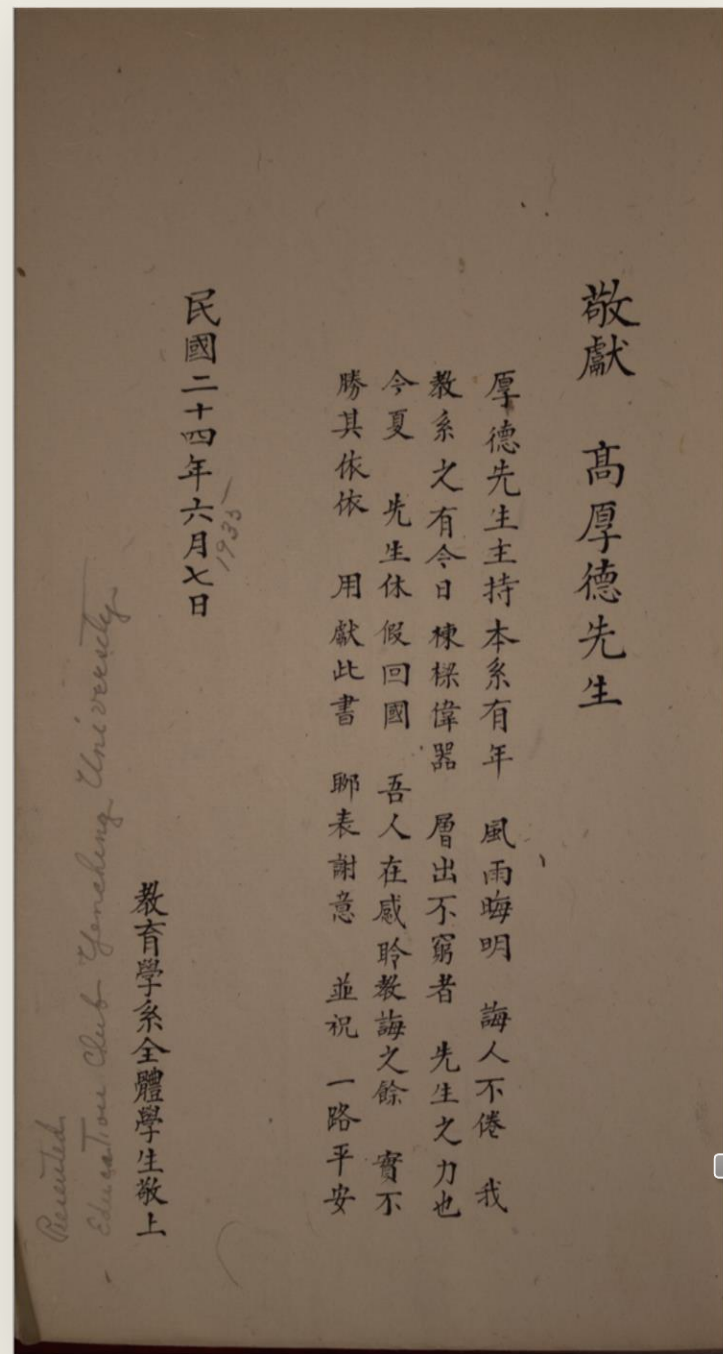 敬獻　高厚德先生
厚德先生主持本系有年　風雨晦明　誨人不倦　我
教系之有今日棟樑偉器　層出不窮者　先生之力也
今夏　先生休假回國　吾人在感聆教誨之餘　實不
勝其依依　用獻此書　聊表謝意　並祝　一路平安
民國二十四年六月七日
1935
教育學系全體學生敬上
Presented
Education Club Yenching University